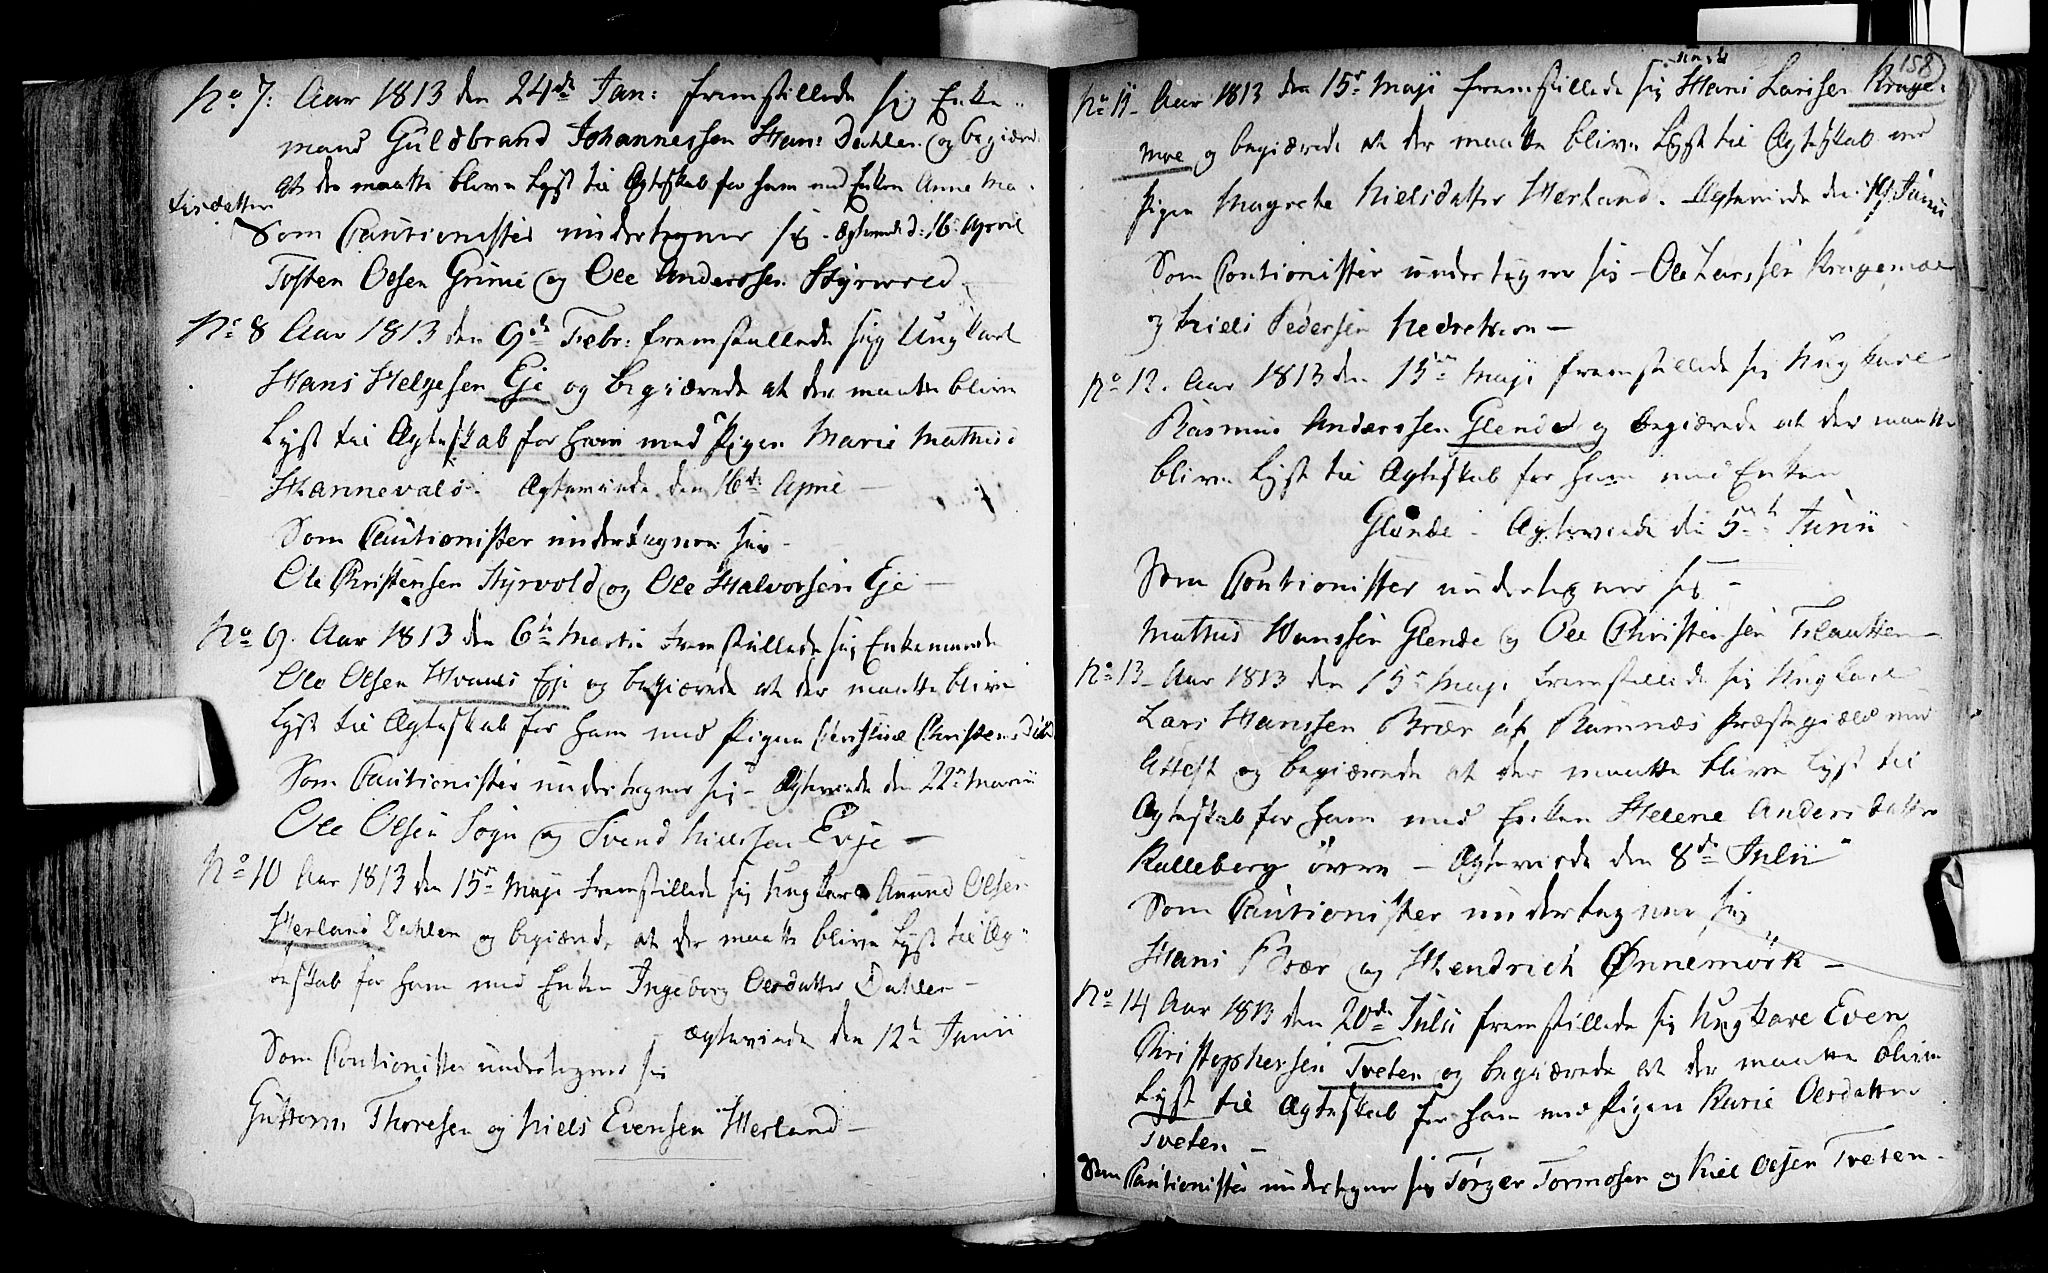 No 7: Aar 1813 den 24de Jan: fremstillede sig Enke-
mand Guldbrand Johannessen Hans: Dahlen og begiærede
at der maatte blive Lyst til Ægteskab for ham med Enken Anne Ma-
tisdatter
Som Cautionister undertegner sig - Ægteviede d: 16 April
Tosten Olsen Grime og Ole Anderssen Styrvold -
No 8 Aar 1813 den 9de Febr: fremstillede sig Ungkarl
Hans Helgesen Eje og begiærede at der maatte blive
Lyst til Ægteskab for ham med Pigen Marie Mathis:
Hannevald - Ægteviede den 16de April -
Som Cautionister undertegner sig -
Ole Christensen Styrvold og Ole Halvorsen Eje -
No 9. Aar 1813 den 6te Martii fremstillede sig Enkemand
Ole Olsen Hvaals Eje og begiærede at der maatte blive
Lyst til Ægteskab for ham med Pigen Christine Christensdatt
Som Cautionister undertegner sig - Ægteviede den 22 Martii
Ole Olsen Sogn og Svend Nielssen Evje -
No 10 Aar 1813 den 15de Maji fremstillede sig Ungkarl Amund Olsen
Herland Dahlen og begiærede at der maatte blive Lyst til Æg-
teskab for ham med Enken Ingeborg Olsdatter Dahlen -
Ægteviede den 12te Junii
Som Cautionister undertegner sig
Guttorm Thoresen og Niels Evensen Herland -
158
No 11 - Aar 1813 den 15de Maji fremstillede sig Hans Larisen Krage-
moe og begiærede at der maatte blive Lyst til Ægteskab med
Pigen Magrete Nielsdatter Herland. Ægteviede den 19 Junii
Som Cautionister undertegner sig - Ole Larssen Kragemoe
og Niels Pedersen Nedretveen -
No 12. Aar 1813 den 15de Maji fremstillede sig Ungkarl
Rasmus Anderssen Glende og begiærede at der maatte
blive Lyst til Ægteskab for ham med Enken
Glende - Ægteviede den 5te Junii
Som Cautionister undertegner sig -
Mathis Hanssen Glende og Ole Christensen Flautten -
No 13 - Aar 1813 den 15de Maji fremstillede sig Ungkarl
Lars Hanssen Bræe af Ramnæs Præstegield med
Attest og begiærede at der maatte blive Lyst til
Ægteskab for ham med Enken Helene Andersdatter
Kalleberg øvre - Ægteviede den 8de Julii
Som Cautionister undertegner sig
Hans Bræe og Hendrich Ønnemörk -
No 14 Aar 1813 den 20de Julii fremstillede sig Ungkarl Even
Christophersen Tveten og begiærede at der maatte blive
Lyst til Ægteskab for ham med Pigen Karie Olsdatter
Tveten -
Som Cautionister undertegner sig Törger Tormosen og Niel Olsen Tveten -